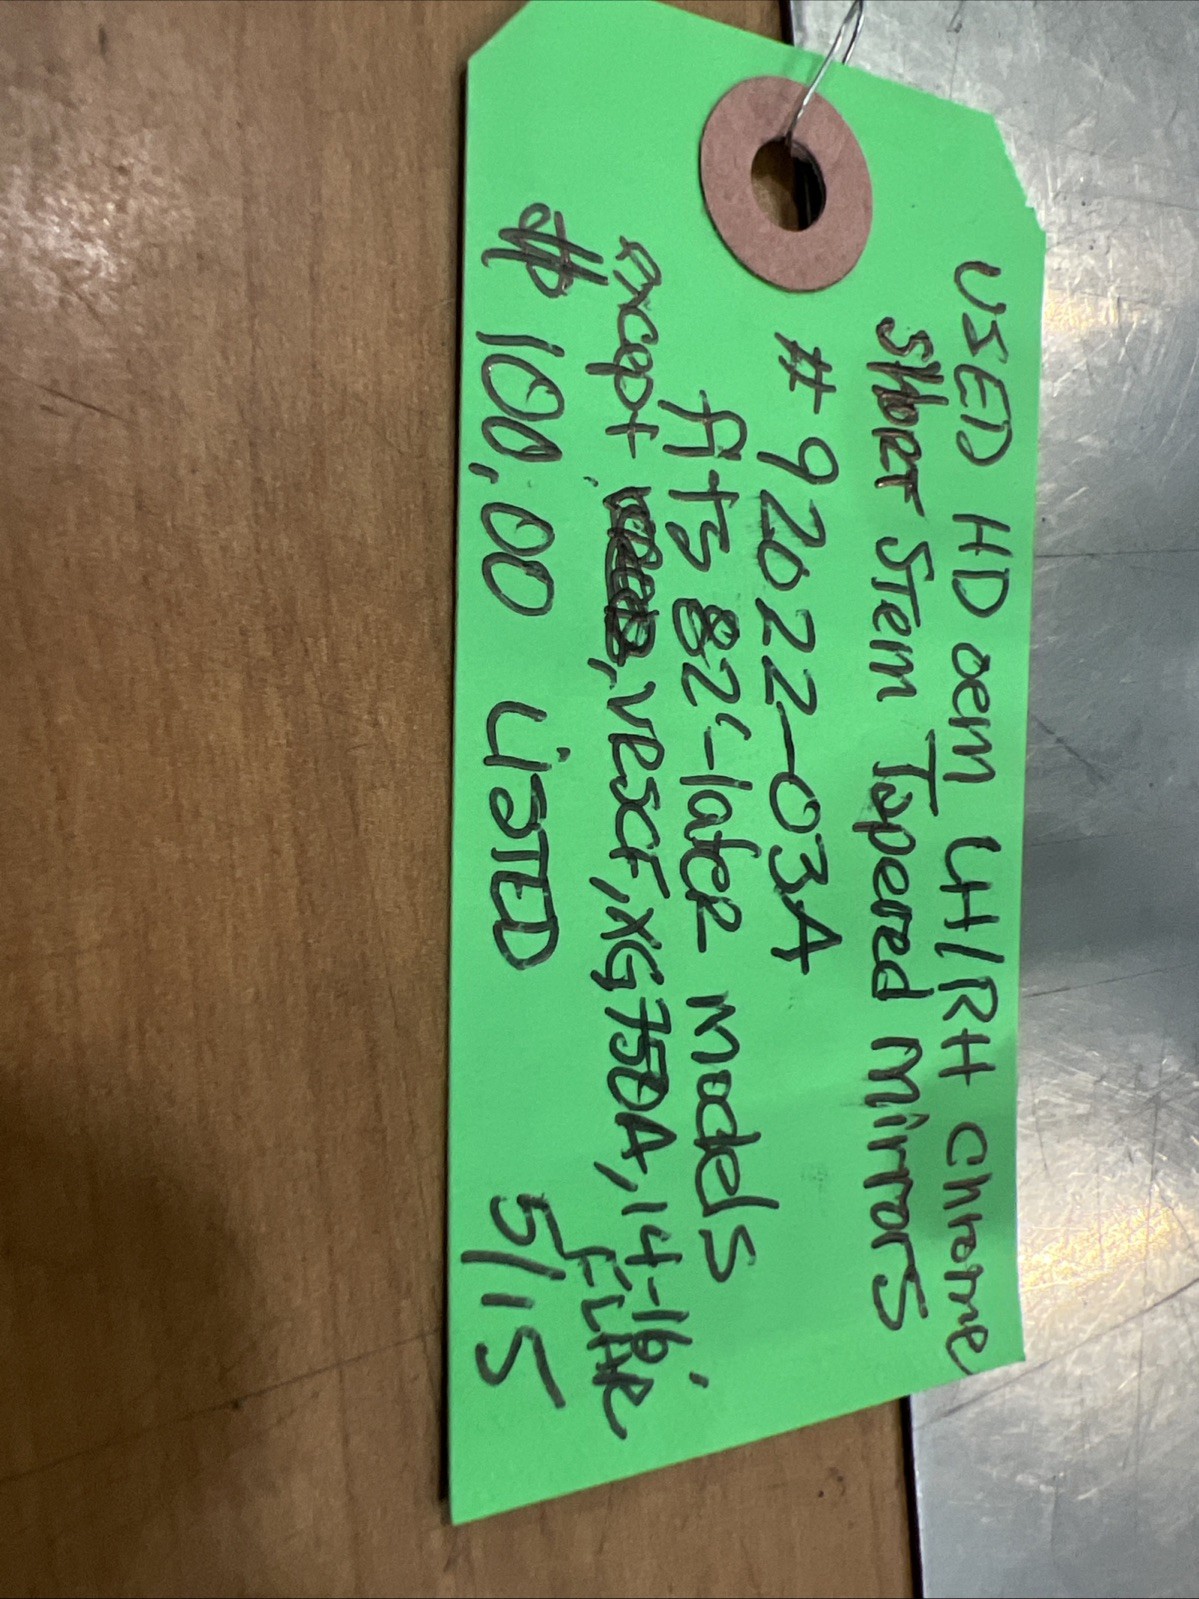 USED HD oem LH/RH Chrome
Short Stem Tapered Mirrors
# 92022-03A
fits 82'-later models
Except , VRSCF, XG750A, 14-16'
FLHR
$ 100.00 LISTED 5/15